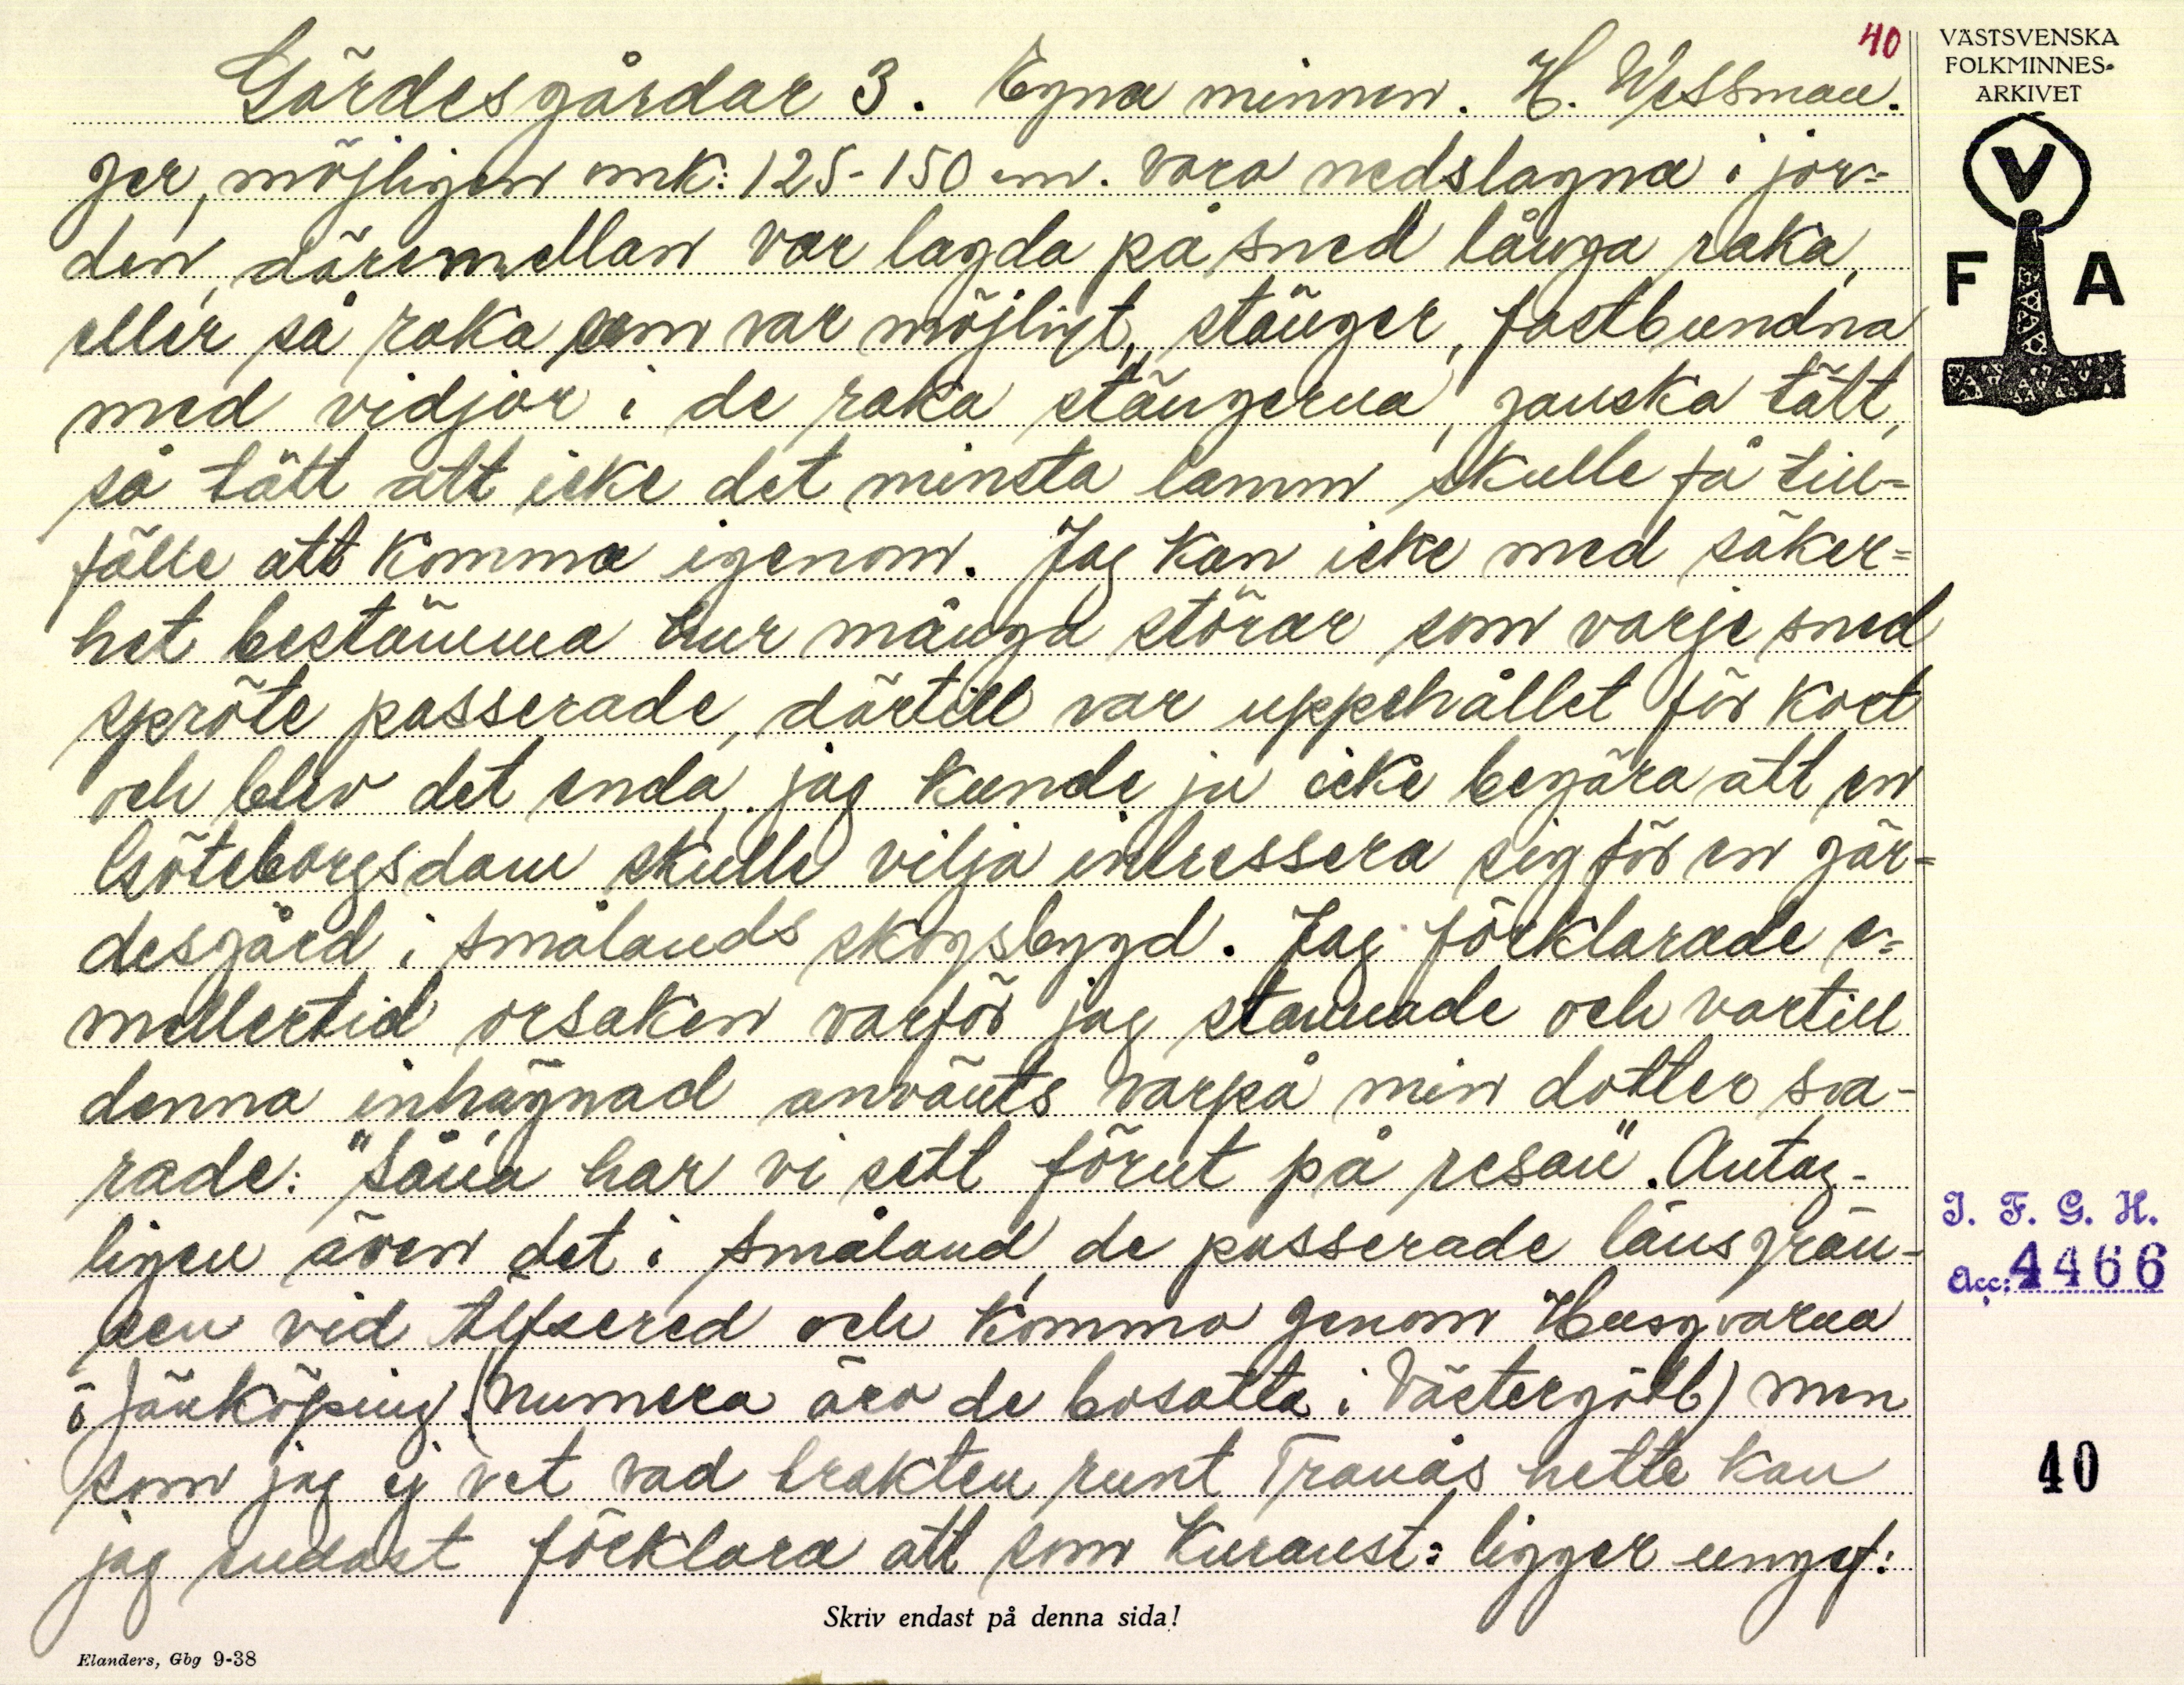 40
VÄSTSVENSKA
FOLKMINNES-
ARKIVET
V
F A
Gärdesgårdar 3. Egna minnen. H. Wessman.
ger, möjligen omk: 125-150 cm. vara nedslagna i jor=
den, däremellan var lagda på sned långa raka,
eller så raka som var möjligt, stänger, fastbundna
med vidjor i de raka stängerna, ganska tätt,
så tätt att icke det minsta lamm skulle få till=
fälle att komma igenom. Jag kan icke med säker=
het bestämma hur många störar som varje sned
spröte passerade, därtill var uppehållet för kort
och blev det enda, jag kunde ju icke begära att en
Göteborgsdam skulle vilja intressera sig för en gär=
desgård i smålands skogsbygd. Jag förklarade e=
mellertid orsaken varför jag stannade och vartill
denna inhägnad använts varpå min dotter sva-
rade: "Såna har vi sett förut på resan". Antag-
ligen även det i småland, de passerade länsgrän-
sen vid Älfsered och kommo genom Husqvarna
o Jönköping. (numera äro de bosatta i Västergötl) men
som jag ej vet vad trakten runt Tranås hette kan
jag endast förklara att som Kuranst: ligger ungef:
Skriv endast på denna sida!
Elanders, Gbg 9-38
I. F. G. H.
Acc: 4466
40